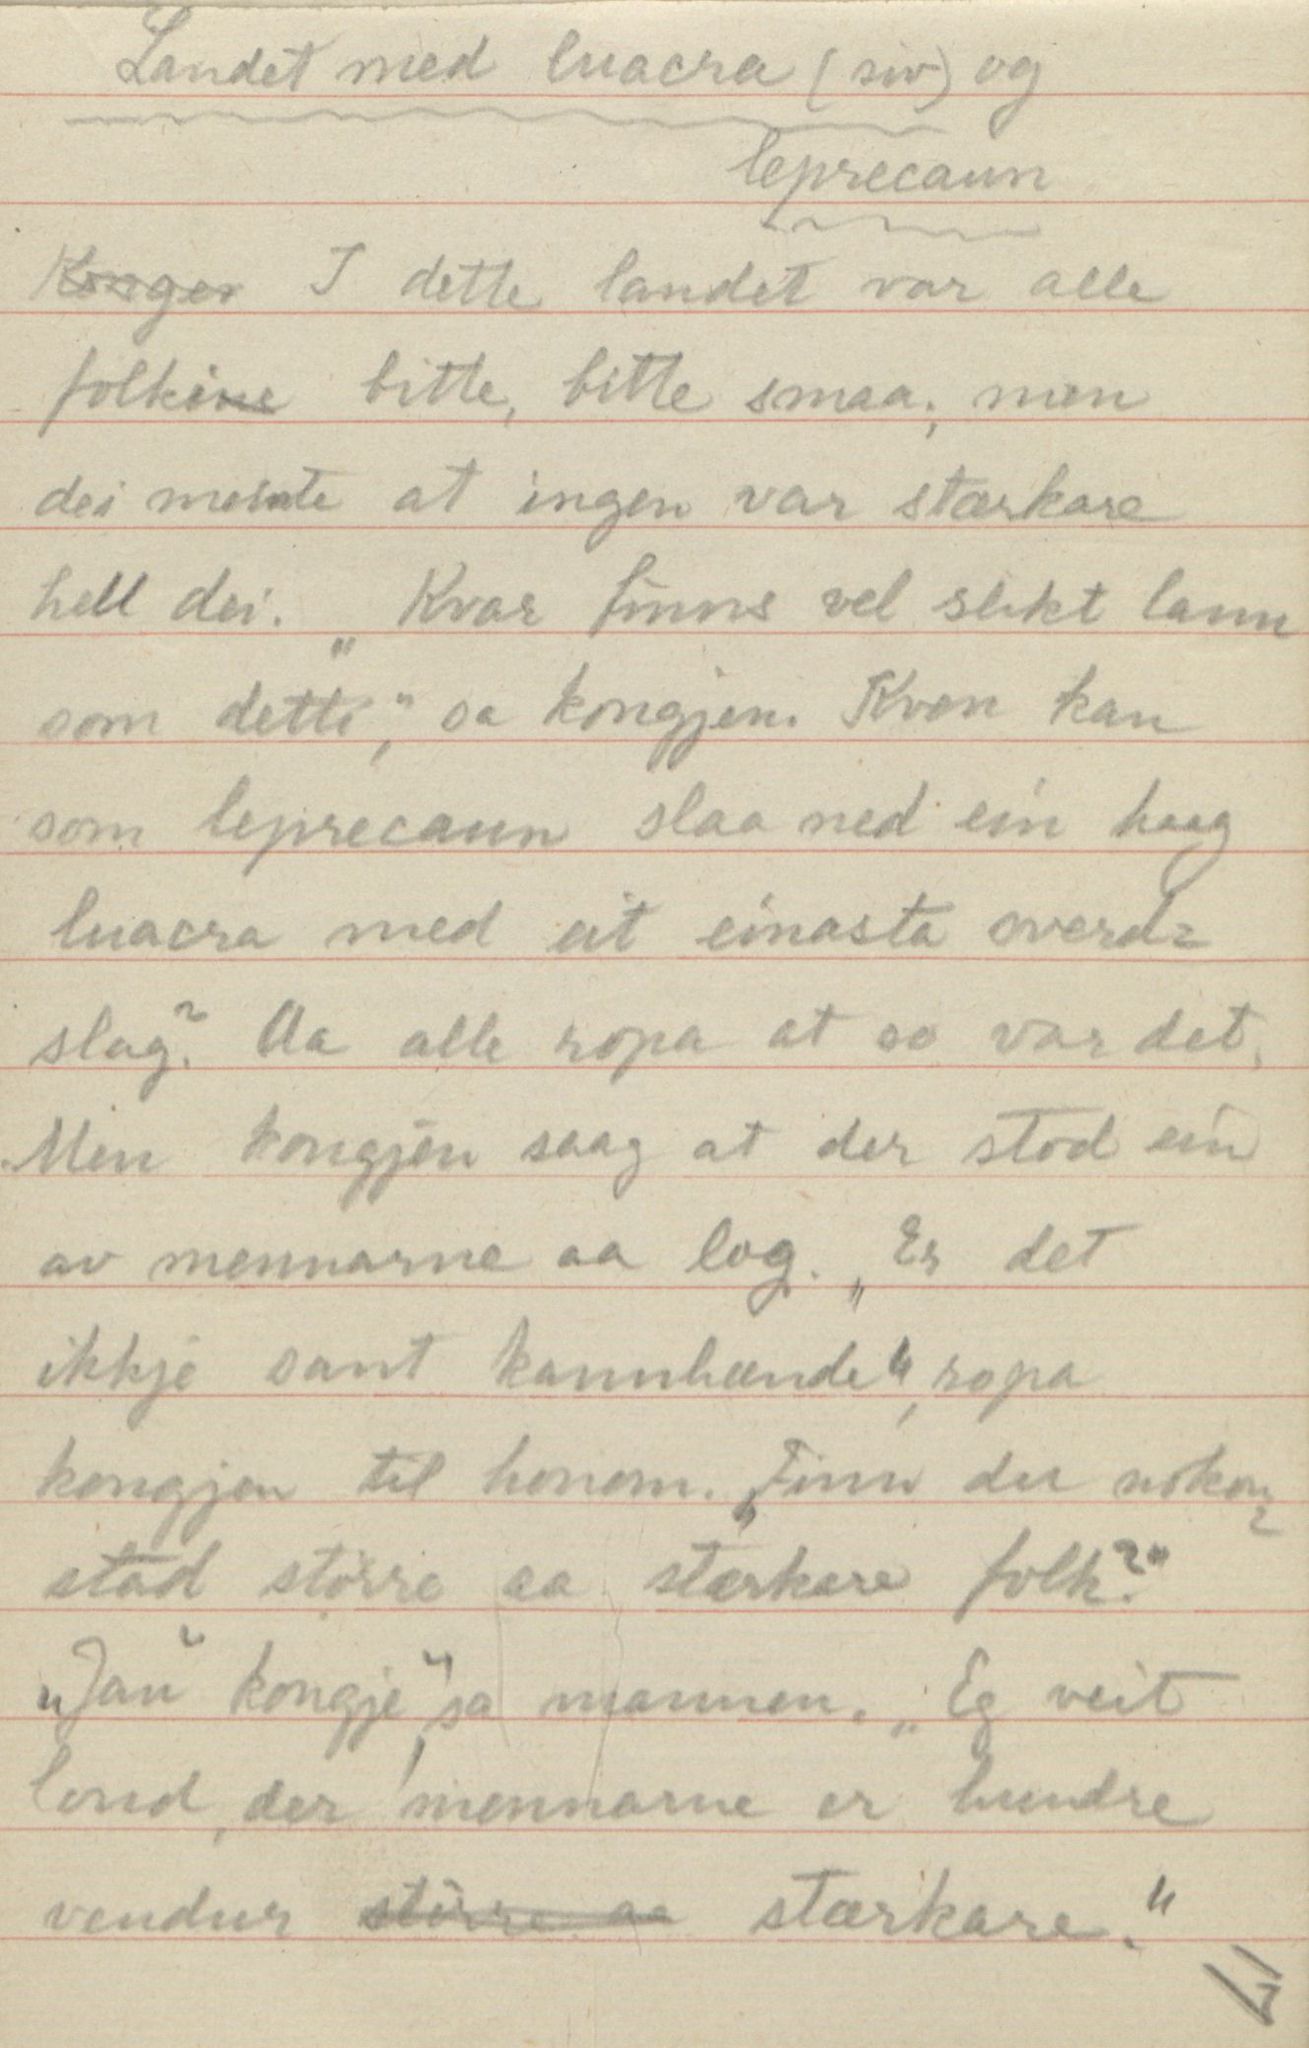 Landet med luacra (siv) og
leprecaun
Konger I dette landet var alle
folkine bitte, bitte smaa; men
dei meinte at ingen var stærkare
hell dei. „Kvar finns vel slikt lann
som dette," sa kongjen. Kven kan
som leprecaun slaa ned ein haag
luacra med eit einasta sverd=
slag? Aa alle ropa at so var det.
Men kongjen saag at der stod ein
av mennarne aa log. „Er det
ikkje sant kannhænde", ropa
kongjen til honom. „Finn du nokon=
stad større aa stærkare folk?"
„Jau kongje", sa mannen. „Eg veit
lond, der mennarne er hundre
vendur större aa stærkare."